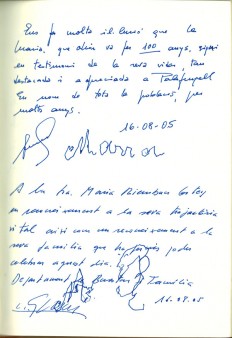 Em fa molta il·lusió que la
Maria, que demà va fer 100 anys, sigui
en testimoni de la seva vida, tan
destacada i apreciada a Palafrugell
En nom de tota la població, per
molts anys.
16-08-05
A la Sra. Maria
en reconeixement a la seva trajectòria
vital així com un reconeixement a la
seva família que ha poder
celebrar aquest dia.
Departament de Benestar i Família
16.08.05